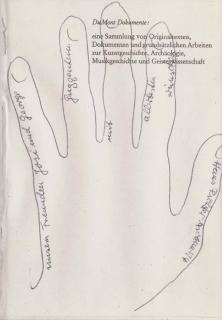 DuMont Dokumente:
eine Sammlung von Originaltexten,
Dokumenten und grundsätzlichen Arbeiten
zur Kunstgeschichte, Archäologie,
Musikgeschichte und Geisteswissenschaft
unsern Freunden José und George
Guggenheim
mit
allerbesten
Hans Richter